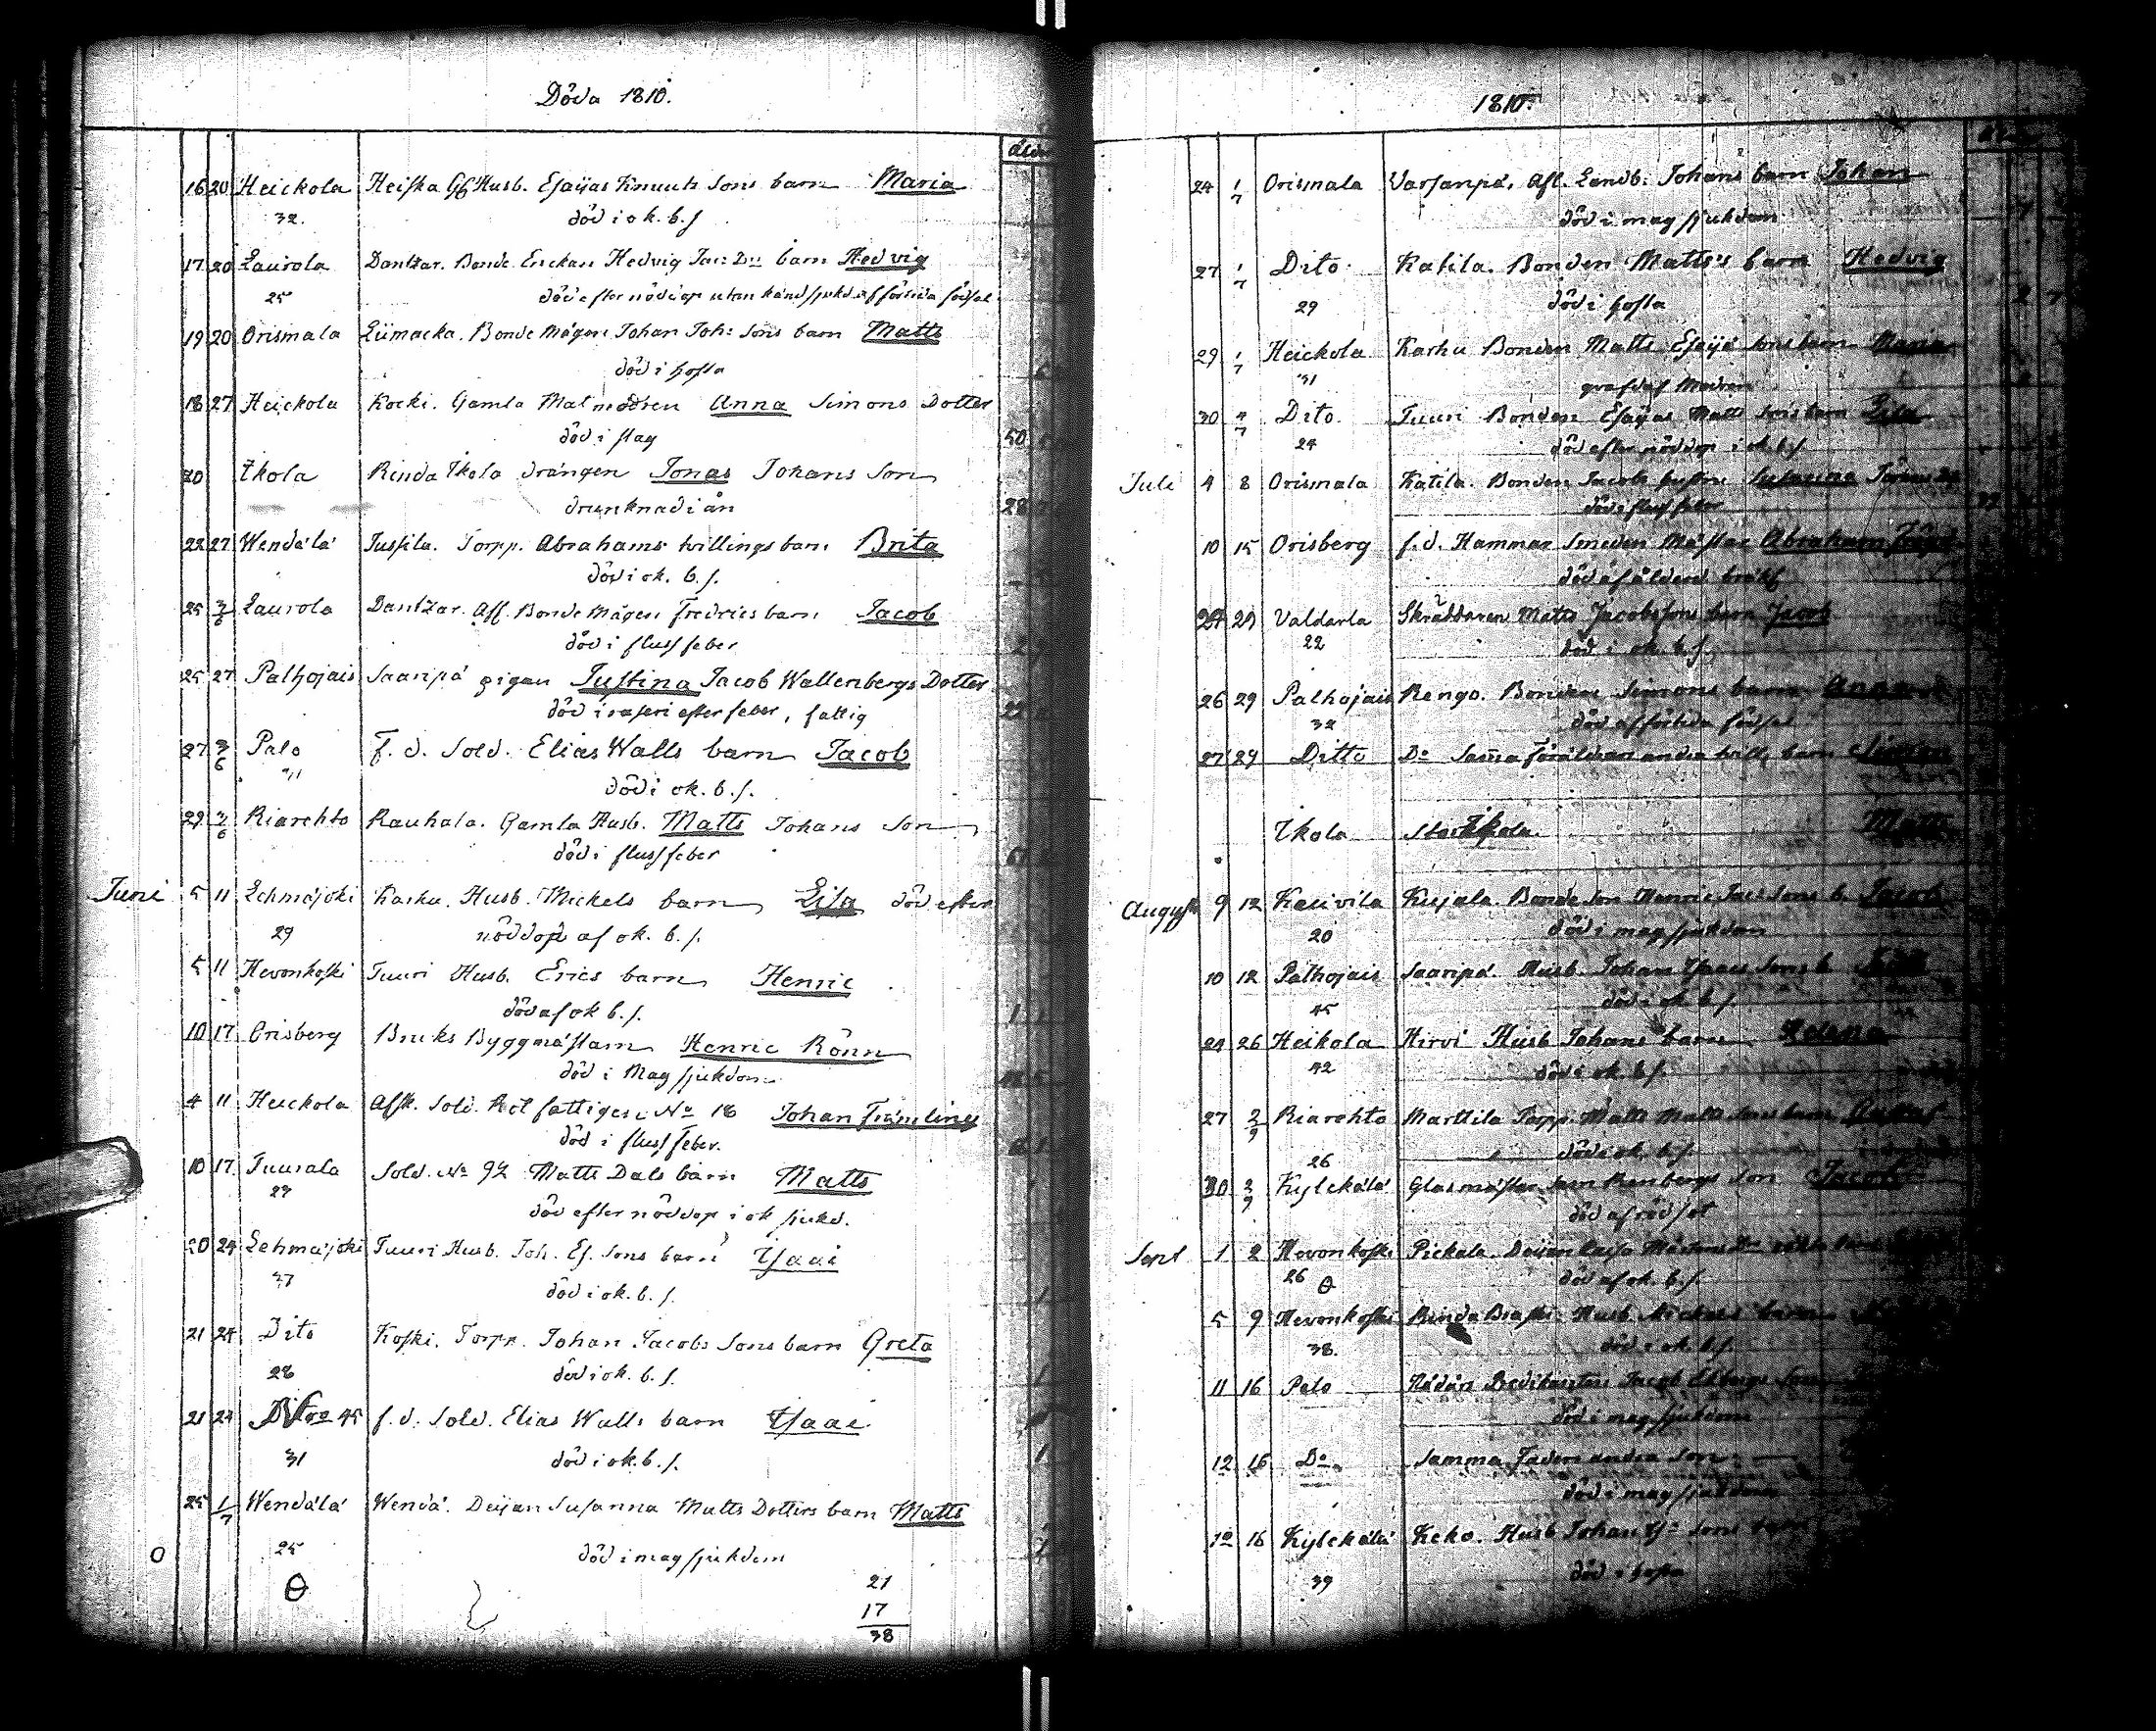 Döda 1810.
16 20 Heickola Heiska Husb. Esaijas Knuuts Sons barn Maria
32. död i ok. b. s
17 20 Laurola Dantzar. Bonde Enckan Hedvig Jac: Dr barn Hedvig
25 död efter nöddop utan känd sjukd. af förtida födsel
19 20 Orismala Liimacka. Bonde Mågen Johan Joh: Sons barn Matts
död i hosta
18 27 Heickola Kocki. Gamla Matmodren Anna Simons Dotter
död i slag 50
20 Ikola Rinda Ikola drängen Jonas Johans Son
drunknad i ån 28
22 27 Wendälä Jussila. Torpp. Abrahams tvillings barn Brita
död i ok. b. s.
25 3/6 Laurola Dantzar. Afl. Bonde Mågen Fredrics barn Jacob
död i fluss feber
25 27 Palhojais Saaripä pigan Justina Jacob Wallenbergs Dotter
död i raseri efter feber, fattig 22
27 3/6 Palo f. d. Sold. Elias Walls barn Jacob
31 död i ok. b. s.
29 3/6 Riarehto Rauhala. Gamla Husb. Matts Johans Son
död i fluss feber
Juni 5 11 Lehmäjoki Karhu. Husb. Mickels barn Lisa död efter
29 nöddop af ok. b. s.
5 11 Hevonkoski Tuuri Husb. Erics barn Henric
död af ok b. s. 1
10 17 Orisberg Bruks Byggmästarn Henric Rönn
död i Mag sjukdom
4 11 Heickola Afsk. Sold. Rot fattigen No 18 Johan Främling
död i fluss feber.
10 17. Tuurala Sold. No 92 Matts Dals barn Matts
29 död efter nöddop i ok sjukd.
20 24 Lehmäjoki Tuuri Husb. Joh. Es. Sons barn Isaac
37 död i ok. b. s.
21 24 Dito Koski. Torpp. Johan Jacobs Sons barn Greta
28 död i ok. b. s.
21 24 No 45 f. d. Sold. Elias Walls barn Isaac
31 död i ok. b. s.
25 1/7 Wendälä Wendä. Deijan Susanna Matts Dotters barn Matts
25 död i mag sjukdom
21
17
38
1810.
24 1/7 Orismala Varsanpä, Afl. Landb: Johans barn Johan
död i mag sjukdom
27 1/7 Dito Katila. Bonden Matts's barn Hedvig
29 död i hosta
29 1/7 Heickola Karhu Bonden Matts Esaijä Sons barn Maria
31 qvafd af Modren
30 4/7 Dito. Tuuri Bonden Esaijas Matts Sons barn Lisa
24 död efter nöddop i ok. b. s.
Juli 4 8 Orismala Katila. Bonden Jacobs hustru
död i fluss feber
10 15 Orisberg f. d. Hammar Smeden Mästar Abraham
död af ålderd. bräckl
24 29 Valdarla Skräddaren Matts Jacobssons barn Jacob
22 död i ok. b. s.
26 29 Palhojais Rengo. Bonden Simons barn
32 död af förtida födsel
27 29 Ditto Do Samma föräldrars andra tvill. barn Simon
Ikola Matts
August 9 12 Kauvila Kujala. Bonde Son Henric Jac: Sons b. Jacob
20 död i mag sjukdom
10 12 Palhojais Saaripä. Husb. Johan Isaac Sons b.
45 död i ok. b. s.
24 26 Heikola Hirvi Husb. Johans barn Helena
42 död i ok. b. s.
27 2/9 Riarehto Marttila Torpp. Matts Matts Sons barn
26 död i ok. b. s.
30 2/9 Kylckälä Glasmästar Renbergs Son Jacob
död af röd sot
Sept 1 2 Hevonkoski Pickala. Deijan Caisa Mårtens Dr
26 död af ok. b. s.
5 9 Hevonkoski Rinda Husb. Mickels barn
38. död i ok. b. s.
11 16 Palo Jacob
död i mag sjukdom
12 16 Do Samma Faders andra Son
död i mag sjukdom
10 16 Kylckälä Keko. Husb. Johan Sons barn
39 död i hosta